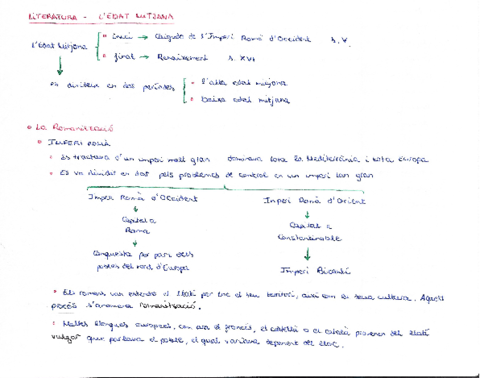 LITERATURA - L'EDAT MITJANA
L'Edat Mitjana
Inici → Caiguda de l'Imperi Romà d'Occident s. V.
Final → Renaixement s. XVI
es divideix en dos períodes
L'alta edat mitjana
Baixa edat mitjana
La Romanització
IMPERI ROMÀ
Es tractava d'un imperi molt gran dominava tota la Mediterrània i tota Europa
Es va dividir en dos pels problemes de control en un imperi tan gran
Imperi Romà d'Occident
Imperi Romà d'Orient
Capital a
Roma
Capital a
Constantinoble
Conquerida per part dels
pobles del nord d'Europa
Imperi Bizantí
Els romans van estendre el llatí per tot el seu territori, així com la seua cultura. Aquest
procés s'anomena romanització.
Moltes llengües europees, com ara el francés, el castellà o el català provenen del llatí
vulgar que parlava el poble, el qual variava depenent del lloc.